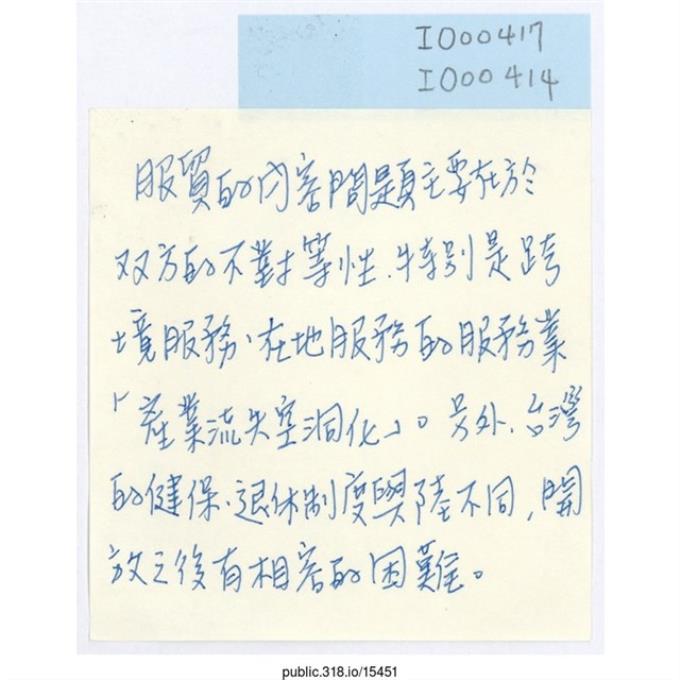 IO00417
IO00414
服貿的內容問題主要在於
双方的不對等性.特別是跨
境服務、在地服務的服務業
「產業流失空洞化」。另外.台灣
的健保、退休制度與陸不同,開
放之後有相容的困難。
public.318.io/15451